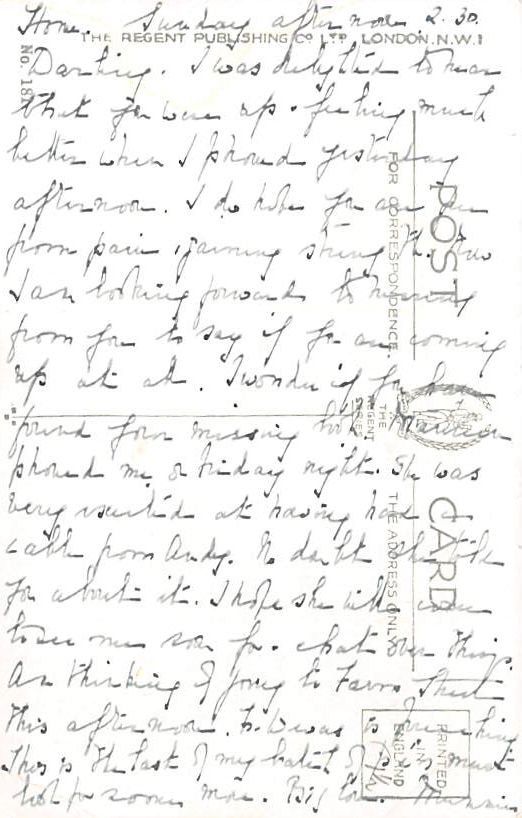 Home. Sunday afternoon 2.30.
THE REGENT PUBLISHING Co LTD LONDON, N.W.1
No. 18
Darling. I was delighted to hear
that you were up & feeling much
better when I phoned yesterday
afternoon. I do hope you are
from pain & gaining strength.
I am looking forward to hearing
from you to say if you are coming
up at all. I wonder if you have
found your missing book. Maureen
phoned me Friday night. She was
very excited at having had a
cable from Andy. No doubt she told
you about it. I hope she will come
to see me soon for a chat over things.
Am thinking of going to Street
this afternoon. is preaching
This is the last of my batch of must
look for some more. Big love. Mummie
POST CARD
FOR CORRESPONDENCE
THE ADDRESS ONLY
THE
REGENT
SERIES
PRINTED
IN
ENGLAND